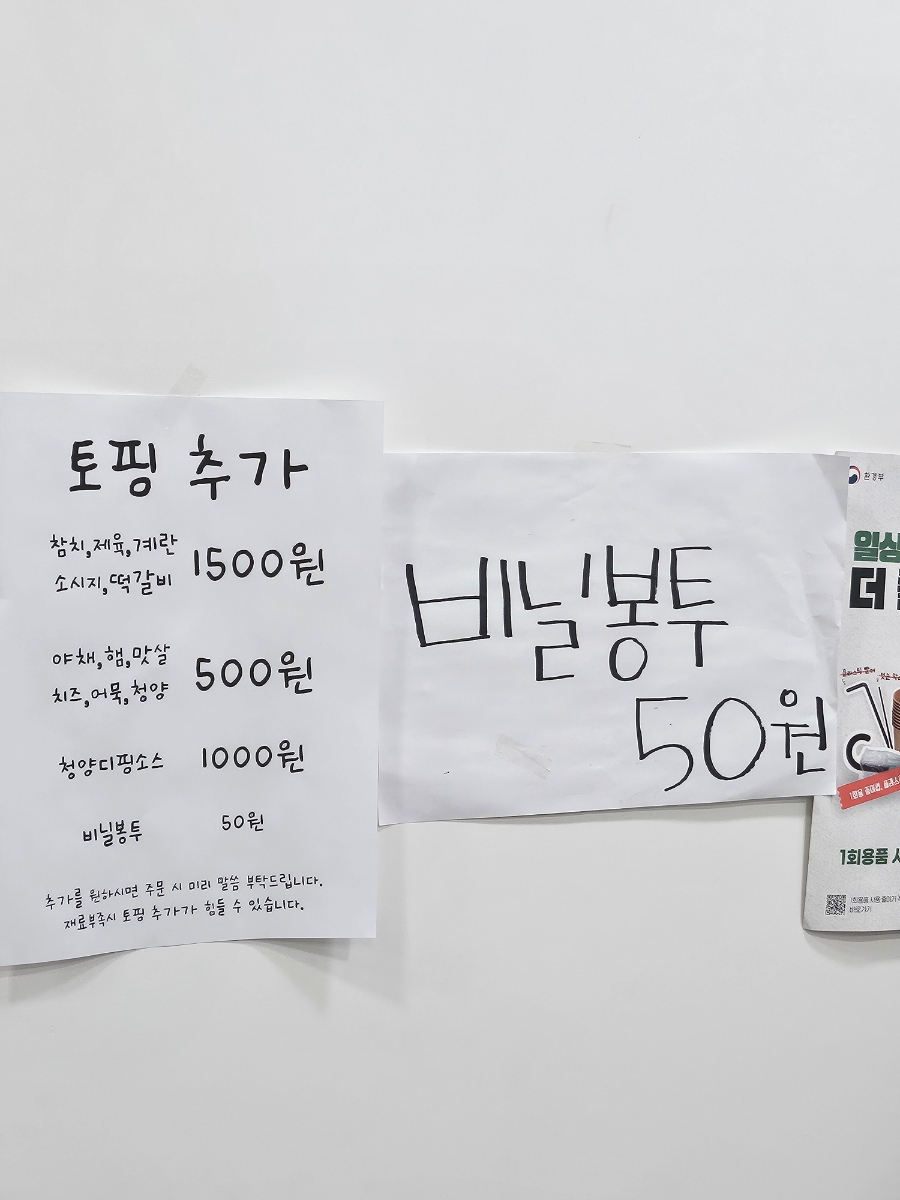 토핑 추가
참치,제육,계란
소시지,떡갈비
1500원
야채,햄,맛살
치즈,어묵,청양
500원
청양디핑소스 1000원
비닐봉투 50원
추가를 원하시면 주문 시 미리 말씀 부탁드립니다.
재료부족시 토핑 추가가 힘들 수 있습니다.
비닐봉투
50원
환경부
더
1회용품
1회용품 사용 줄이기
바로가기